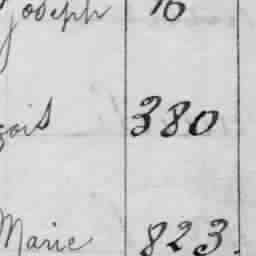 Joseph 16
çois 380
Marie 823.